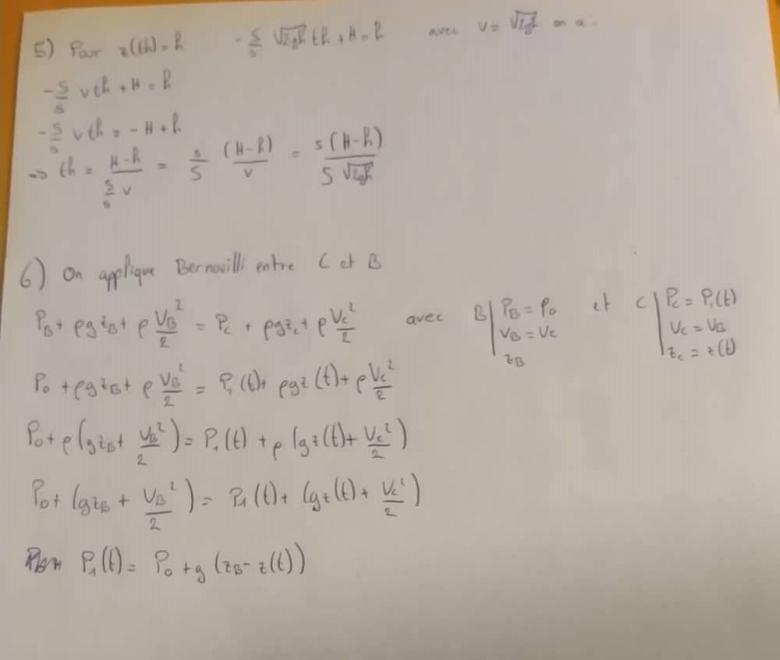 5) Pour z(th) = h   - s/S √2gh th + H = h   avec v = √2gh on a.
- s/S v th + H = h
- s/S v th = - H + h
=> th = (H-h)/(s/S v) = s/S (H-h)/v = s(H-h)/(S √2gh)
6) On applique Bernouilli entre C et B
P_B + ρg z_B + ρ V_B²/2 = P_C + ρg z_C + ρ V_C²/2   avec B | P_B = P_0   et C | P_C = P_1(t)
V_B = V_C   V_C = V_B
z_B   z_C = z(t)
P_0 + ρg z_B + ρ V_B²/2 = P_1(t) + ρg z(t) + ρ V_C²/2
P_0 + ρ(g z_B + V_B²/2) = P_1(t) + ρ(g z(t) + V_C²/2)
P_0 + (g z_B + V_B²/2) = P_1(t) + (g z(t) + V_C²/2)
P_1(t) = P_0 + g(z_B - z(t))